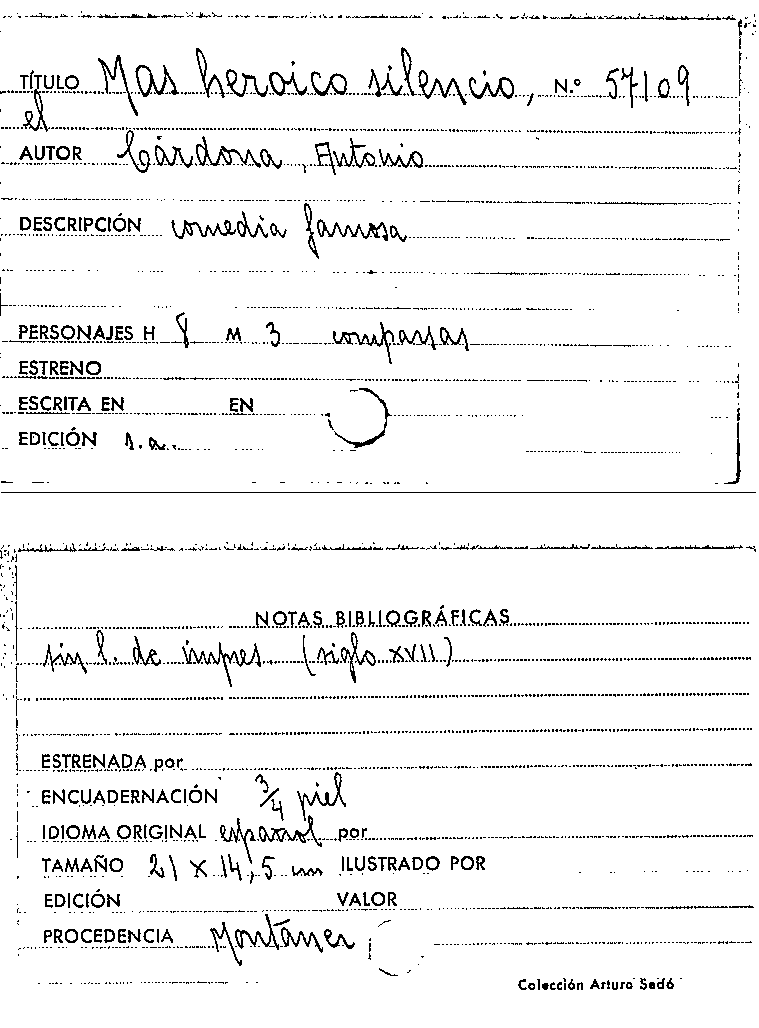 TÍTULO Mas heroico silencio, N.º 57109
el
AUTOR Cárdona, Antonio
DESCRIPCIÓN comedia famosa
PERSONAJES H 8 M 3 comparsas
ESTRENO
ESCRITA EN EN
EDICIÓN s.a.
NOTAS BIBLIOGRÁFICAS
sin l. de impres. (siglo XVII)
ESTRENADA por
ENCUADERNACIÓN 3/4 piel
IDIOMA ORIGINAL español por
TAMAÑO 21 x 14,5 cm ILUSTRADO POR
EDICIÓN VALOR
PROCEDENCIA Montaner
Colección Arturo Sedó